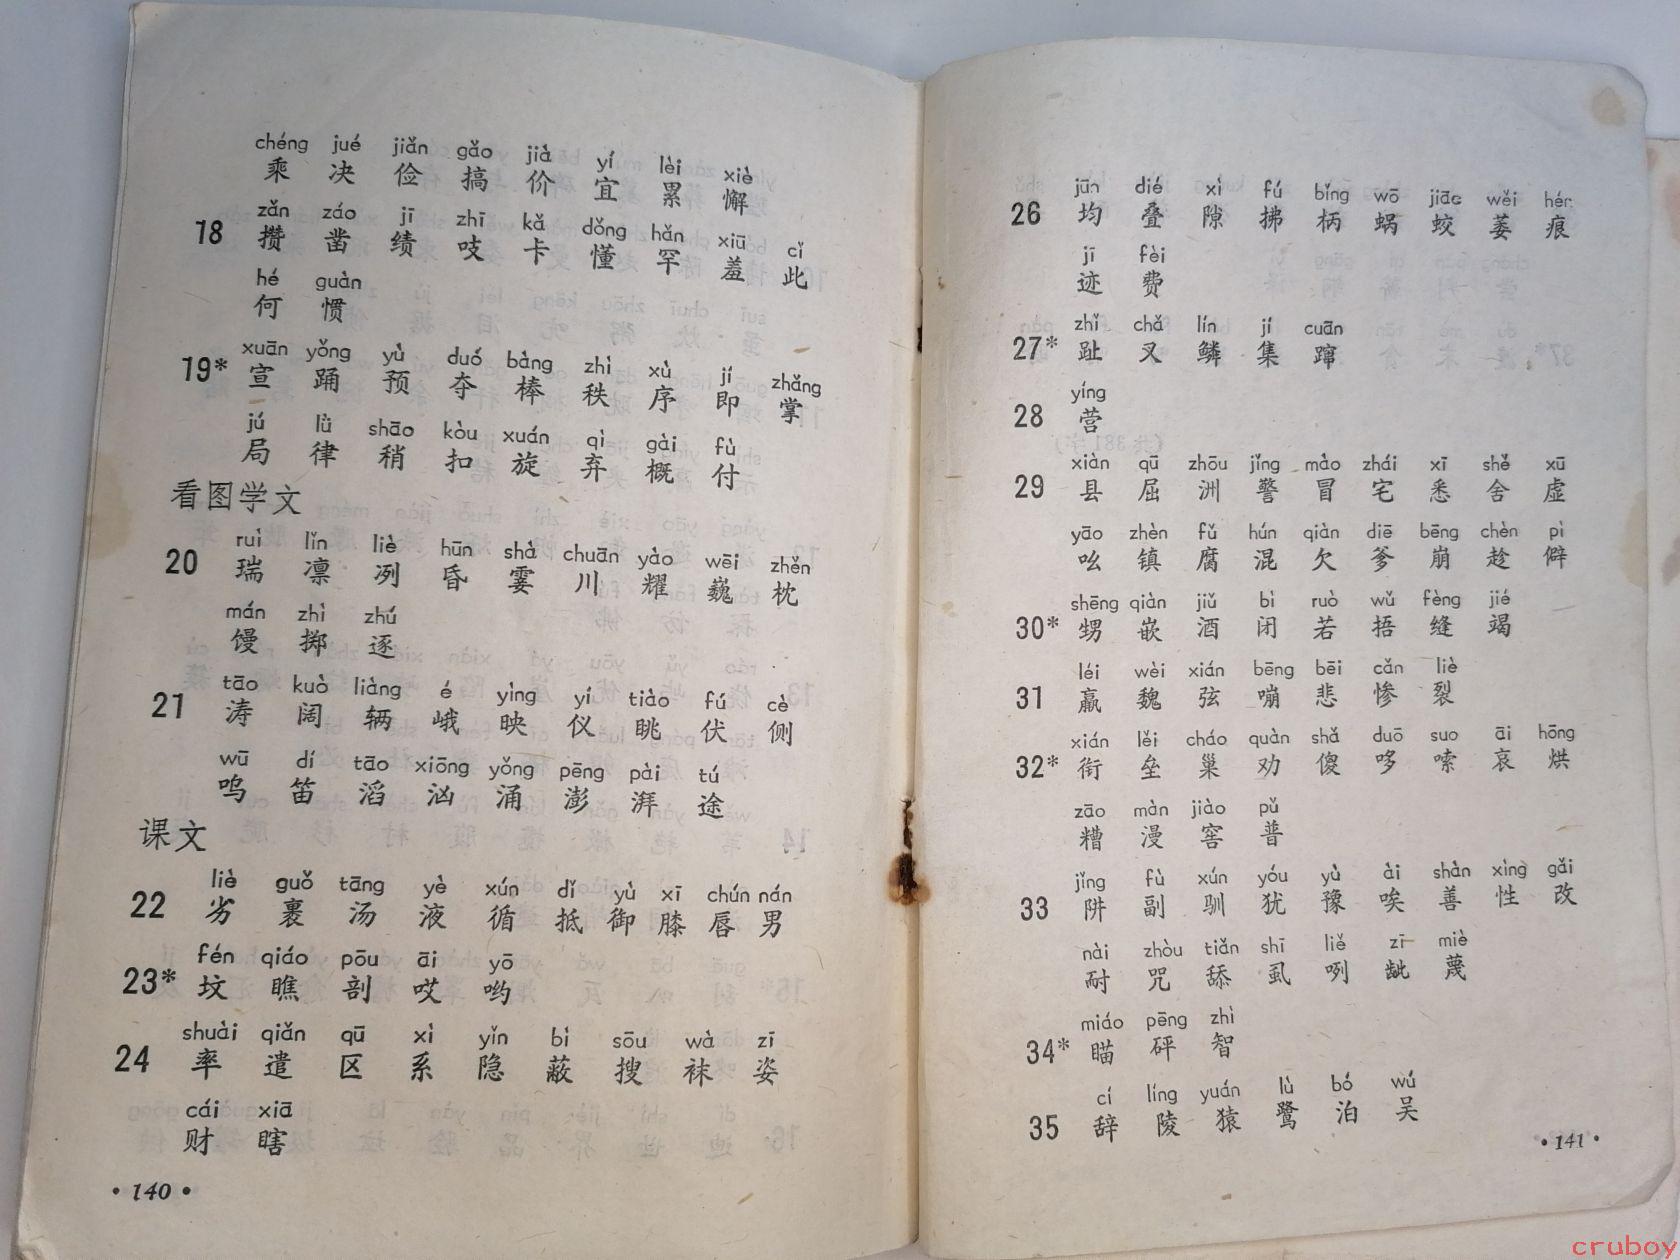 chéng jué jiǎn gǎo jià yí lèi xiè
乘 决 俭 搞 价 宜 累 懈
zǎn záo jī zhī kǎ dǒng hǎn xiū cǐ
18 攒 凿 绩 吱 卡 懂 罕 羞 此
hé guàn
何 惯
xuān yǒng yù duó bàng zhì xù jí zhǎng
19* 宣 踊 预 夺 棒 秩 序 即 掌
jú lǜ shāo kòu xuán qì gài fù
局 律 稍 扣 旋 弃 概 付
看图学文
ruì lǐn liè hūn shà chuān yào wēi zhěn
20 瑞 凛 冽 昏 霎 川 耀 巍 枕
mán zhì zhú
馒 掷 逐
tāo kuò liàng é yìng yí tiào fú cè
21 涛 阔 辆 峨 映 仪 眺 伏 侧
wū dí tāo xiōng yǒng pēng pài tú
呜 笛 滔 汹 涌 澎 湃 途
课文
liè guǒ tāng yè xún dǐ yù xī chún nán
22 劣 裹 汤 液 循 抵 御 膝 唇 男
fén qiáo pōu āi yō
23* 坟 瞧 剖 哎 哟
shuài qiǎn qū xì yǐn bì sōu wà zī
24 率 遣 区 系 隐 蔽 搜 袜 姿
cái xiā
财 瞎
• 140 •
jūn dié xì fú bǐng wō jiāo wěi hén
26 均 叠 隙 拂 柄 蜗 蛟 萎 痕
jī fèi
迹 费
zhǐ chǎ lín jí cuān
27* 趾 叉 鳞 集 蹿
yíng
28 营
xiàn qū zhōu jǐng mào zhái xī shě xū
29 县 屈 洲 警 冒 宅 悉 舍 虚
yāo zhèn fǔ hún qiàn diē bēng chèn pì
吆 镇 腐 混 欠 爹 崩 趁 僻
shēng qiàn jiǔ bì ruò wǔ fèng jié
30* 甥 嵌 酒 闭 若 捂 缝 竭
léi wèi xián bēng bēi cǎn liè
31 羸 魏 弦 嘣 悲 惨 裂
xián lěi cháo quàn shǎ duō suo āi hōng
32* 衔 垒 巢 劝 傻 哆 嗦 哀 烘
zāo màn jiào pǔ
糟 漫 窖 普
jǐng fù xún yóu yù ài shàn xìng gǎi
33 阱 副 驯 犹 豫 唉 善 性 改
nài zhòu tiǎn shī liě zī miè
耐 咒 舔 虱 咧 龇 蔑
miáo pēng zhì
34* 瞄 砰 智
cí líng yuán lù bó wú
35 辞 陵 猿 鹭 泊 吴
• 141 •
cruboy